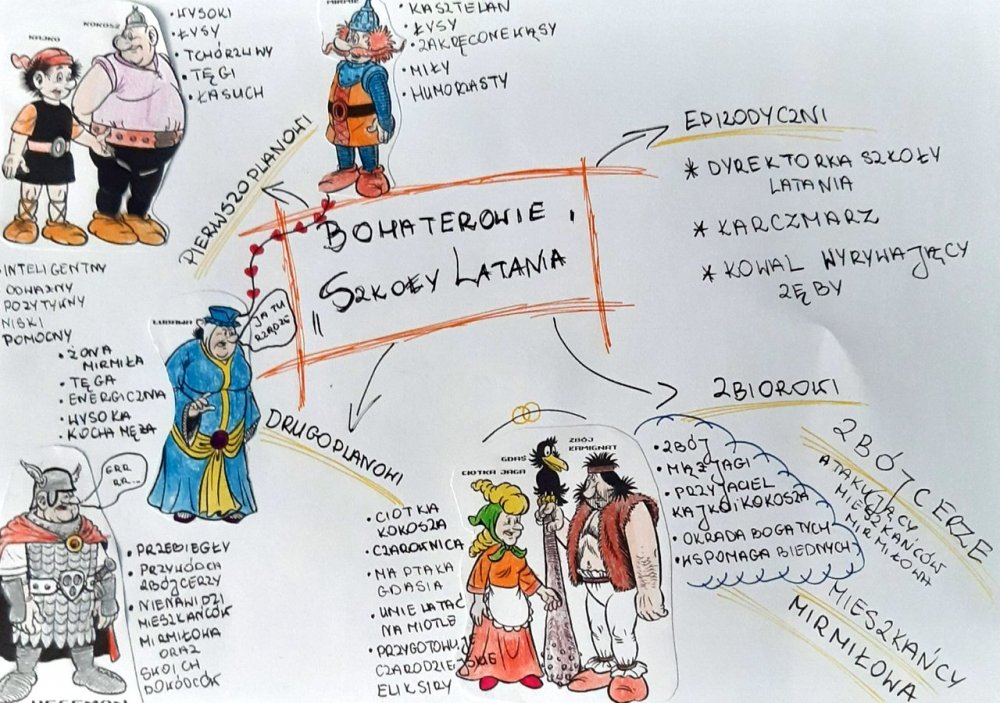 KAJKO
KOKOSZ
• WYSOKI
• ŁYSY
• TCHÓRZLIWY
• TĘGI
• ŁASUCH
MIRMIŁ
• KASZTELAN
• ŁYSY
• ZAKRĘCONE WĄSY
• MIŁY
• HUMORZASTY
PIERWSZOPLANOWI
BOHATEROWIE
„SZKOŁY LATANIA
EPIZODYCZNI
* DYREKTORKA SZKOŁY
LATANIA
* KARCZMARZ
* KOWAL WYRYWAJĄCY
ZĘBY
INTELIGENTNY
ODWAŻNY
POZYTYWNY
NISKI
POMOCNY
LUBAWA
JA TU
RZĄDZĘ
• ŻONA
MIRMIŁA
• TĘGA
• ENERGICZNA
• WYSOKA
• KOCHA MĘŻA
DRUGOPLANOWI
GRR
RR...
• PRZEBIEGŁY
• PRZYWÓDCA
ZBÓJCERZY
• NIENAWIDZI
MIESZKAŃCÓW
MIRMIŁOWA
ORAZ
SWOICH
DOWÓDCÓW
HEGEMON
• CIOTKA
KOKOSZA
• CZAROWNICA
• MA PTAKA
GDASIA
• UMIE LATAĆ
NA MIOTLE
• PRZYGOTOWUJE
CZARODZIEJSKIE
ELIKSIRY
GDAŚ
CIOTKA JAGA
ZBÓJ
ŁAMIGNAT
• ZBÓJ
• MĄŻ JAGI
• PRZYJACIEL
KAJKO I KOKOSZA
• OKRADA BOGATYCH
• WSPOMAGA BIEDNYCH
ZBIOROWI
ZBÓJCERZE
ATAKUJĄCY
MIESZKAŃCÓW
MIRMIŁOWA
MIESZKAŃCY
MIRMIŁOWA